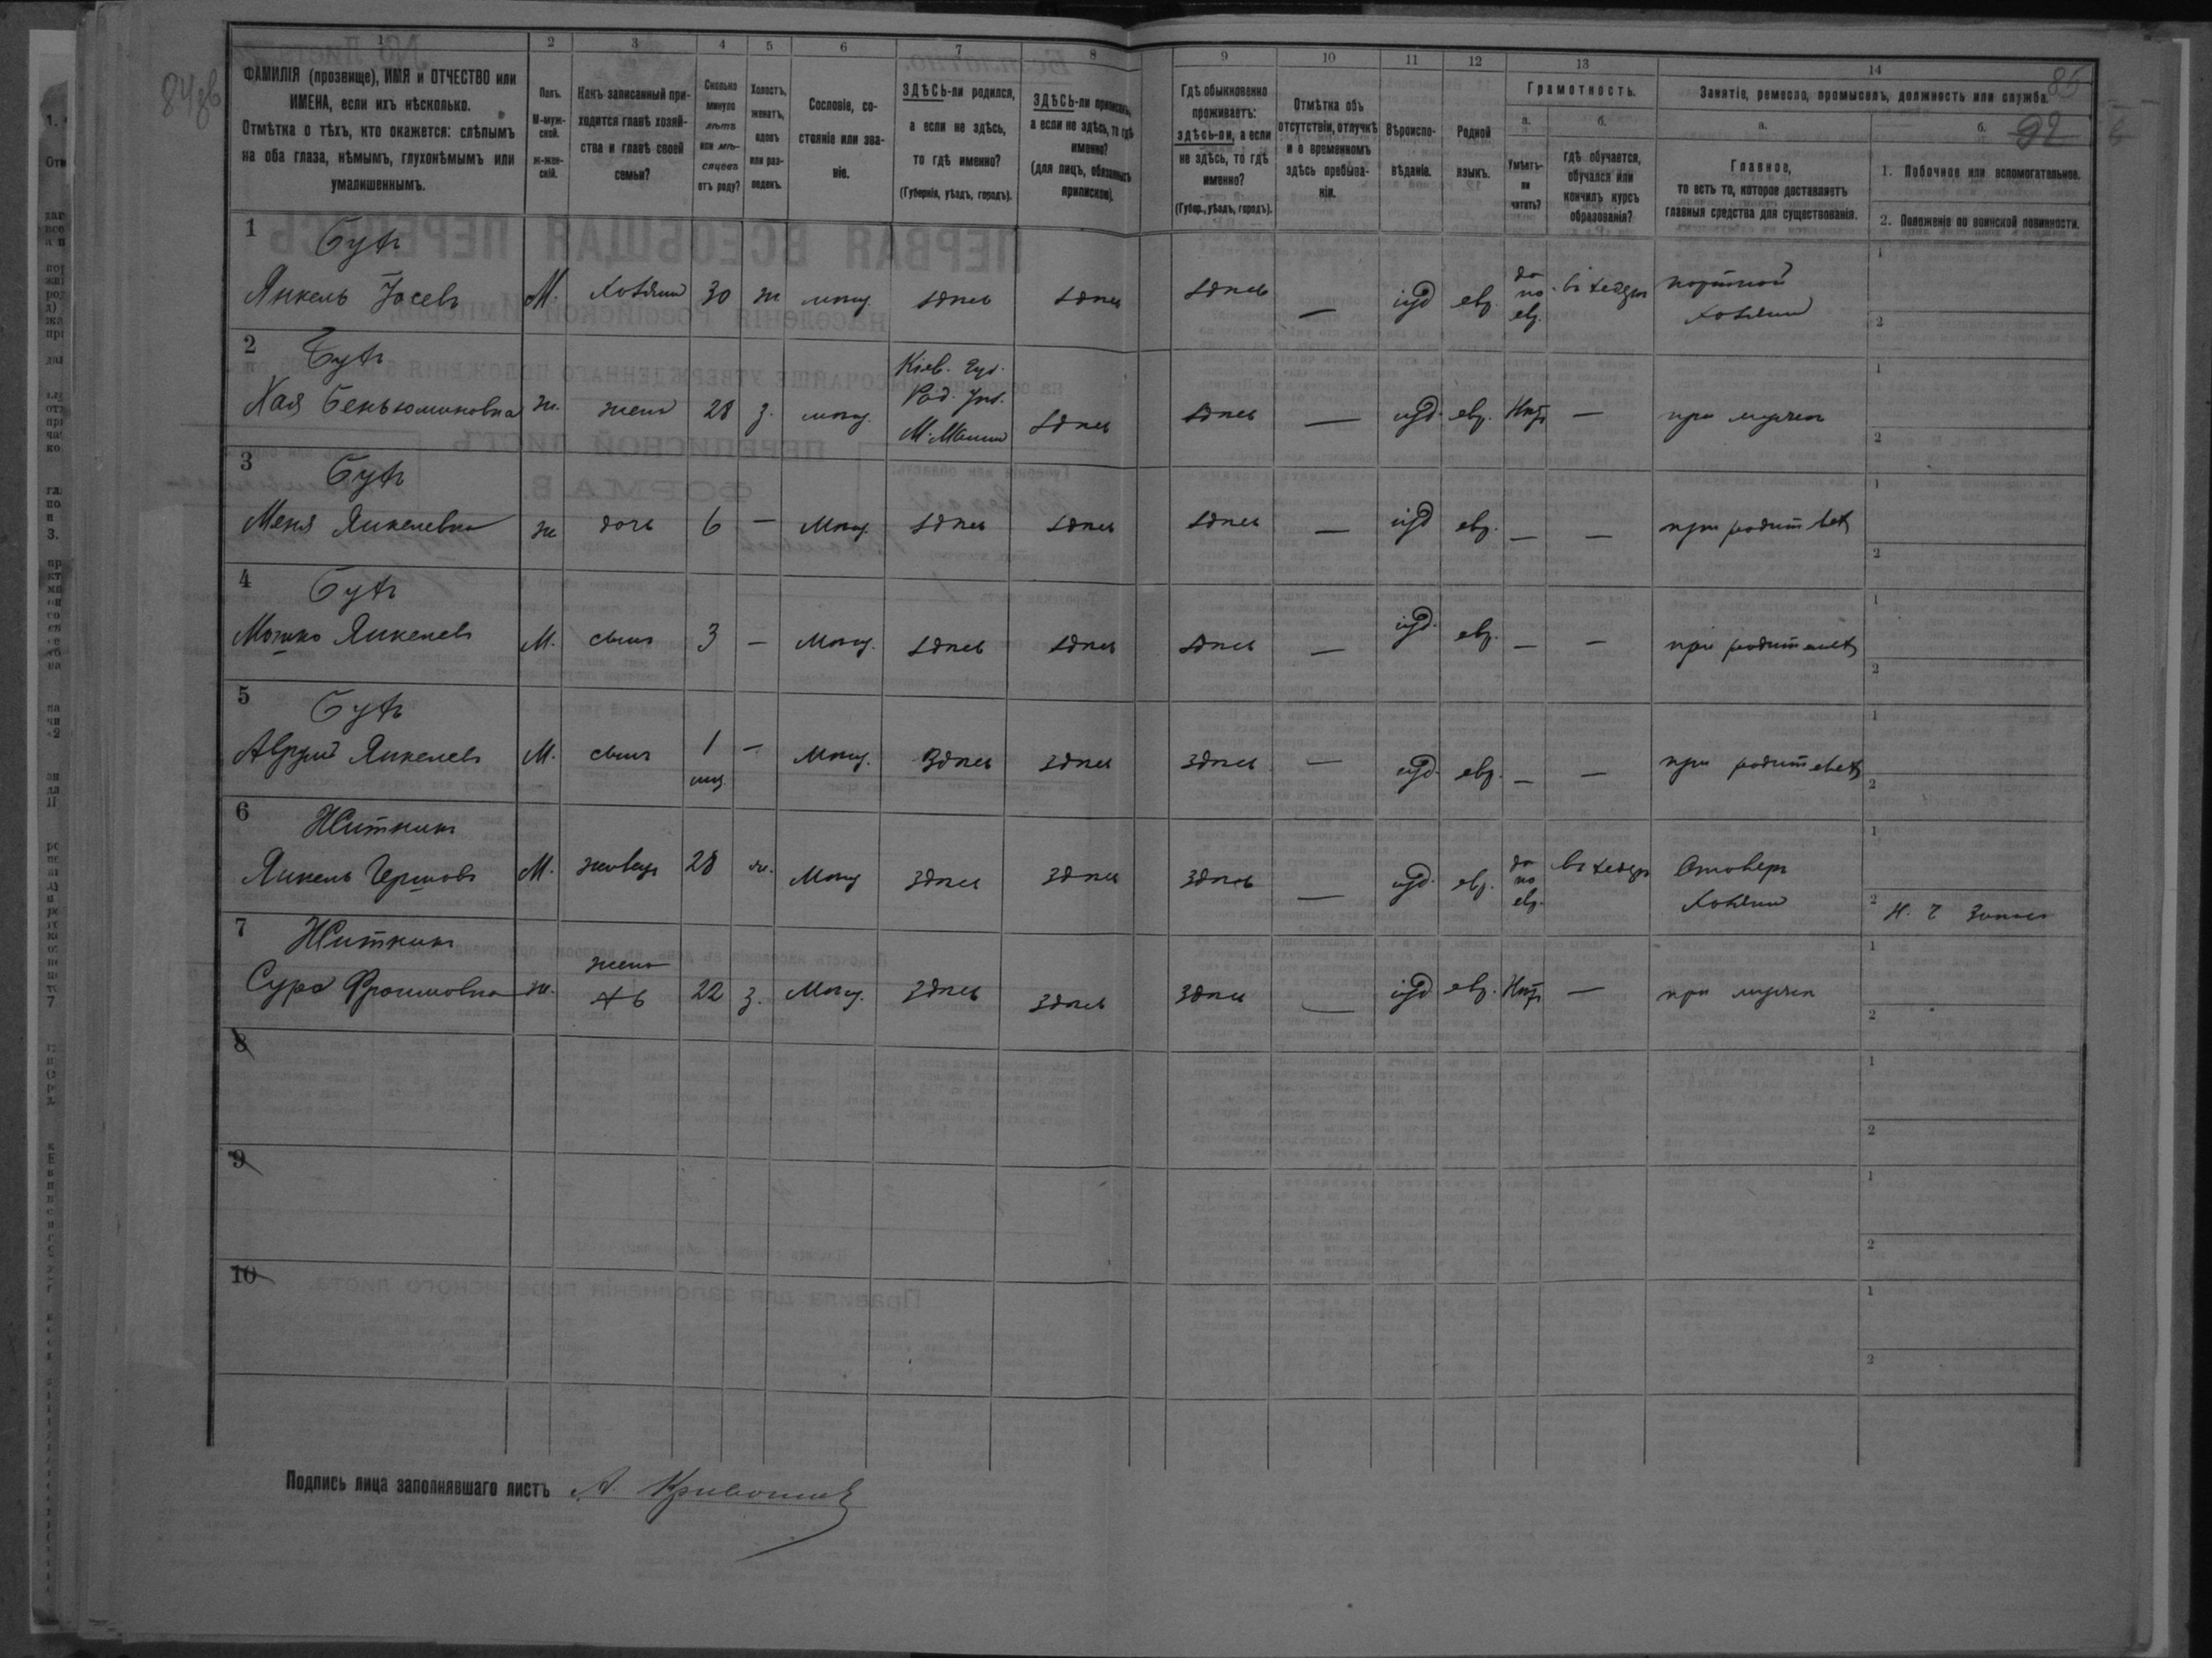 84об
85
92
1 2 3 4 5 6 7 8 9 10 11 12 13 14
ФАМИЛІЯ (прозвище), ИМЯ и ОТЧЕСТВО или
ИМЕНА, если ихъ нѣсколько.
Отмѣтка о тѣхъ, кто окажется: слѣпымъ
на оба глаза, нѣмымъ, глухонѣмымъ или
умалишеннымъ.
Полъ.
М-муж-
ской.
Ж-жен-
скій.
Какъ записанный при-
ходится главѣ хозяй-
ства и главѣ своей
семьи?
Сколько
минуло
лѣтъ
или мѣ-
сяцевъ
отъ роду?
Холостъ,
женатъ,
вдовъ
или раз-
веденъ.
Сословіе, со-
стояніе или зва-
ніе.
ЗДѢСЬ-ли родился,
а если не здѣсь,
то гдѣ именно?
(Губернія, уѣздъ, городъ).
ЗДѢСЬ-ли приписанъ,
а если не здѣсь, то гдѣ
именно?
(для лицъ, обязанныхъ
припискою).
Гдѣ обыкновенно
проживаетъ:
здѣсь-ли, а если
не здѣсь, то гдѣ
именно?
(Губер., уѣздъ, городъ).
Отмѣтка объ
отсутствіи, отлучкѣ
и о временномъ
здѣсь пребыва-
ніи.
Вѣроиспо-
вѣданіе.
Родной
языкъ.
Грамотность.
а.
Умѣетъ-
ли
читать?
б.
гдѣ обучается,
обучался или
кончилъ курсъ
образованія?
Занятіе, ремесло, промыселъ, должность или служба.
а.
Главное,
то есть то, которое доставляетъ
главныя средства для существованія.
б.
1. Побочное или вспомогательное.
2. Положеніе по воинской повинности.
1 Бутъ
Янкель Іосевъ М. Хозяинъ 30 ж мѣщ. здѣсь здѣсь здѣсь — іуд евр. да по евр. въ хедерѣ портной
хозяинъ
2 Бутъ
Хая Беньюминовна ж. жена 28 з. мѣщ. Кіев. Губ.
Рад. Уѣз.
М. здѣсь здѣсь — іуд. евр. Нѣтъ — при мужѣ
3 Бутъ
Меня Янкелевна ж дочь 6 — мѣщ. здѣсь здѣсь здѣсь — іуд евр. — —
4 Бутъ
Мошко Янкелевъ М. сынъ 3 — мѣщ. здѣсь здѣсь здѣсь — іуд. евр. — —
5 Бутъ
Янкелевъ М. сынъ 1 — мѣщ. здѣсь здѣсь здѣсь — іуд. евр. — —
6 Житкинъ
Янкель Гершовъ М. жилецъ 28 ж. мѣщ здѣсь здѣсь здѣсь — іуд. евр. да по евр. въ хедерѣ Столяръ
хозяинъ
7 Житкинъ
Сура Фроимовна ж. жена
№6 22 з. мѣщ. здѣсь здѣсь здѣсь — іуд евр. Нѣтъ — при мужѣ
8
9
10
Подпись лица заполнявшаго листъ А.